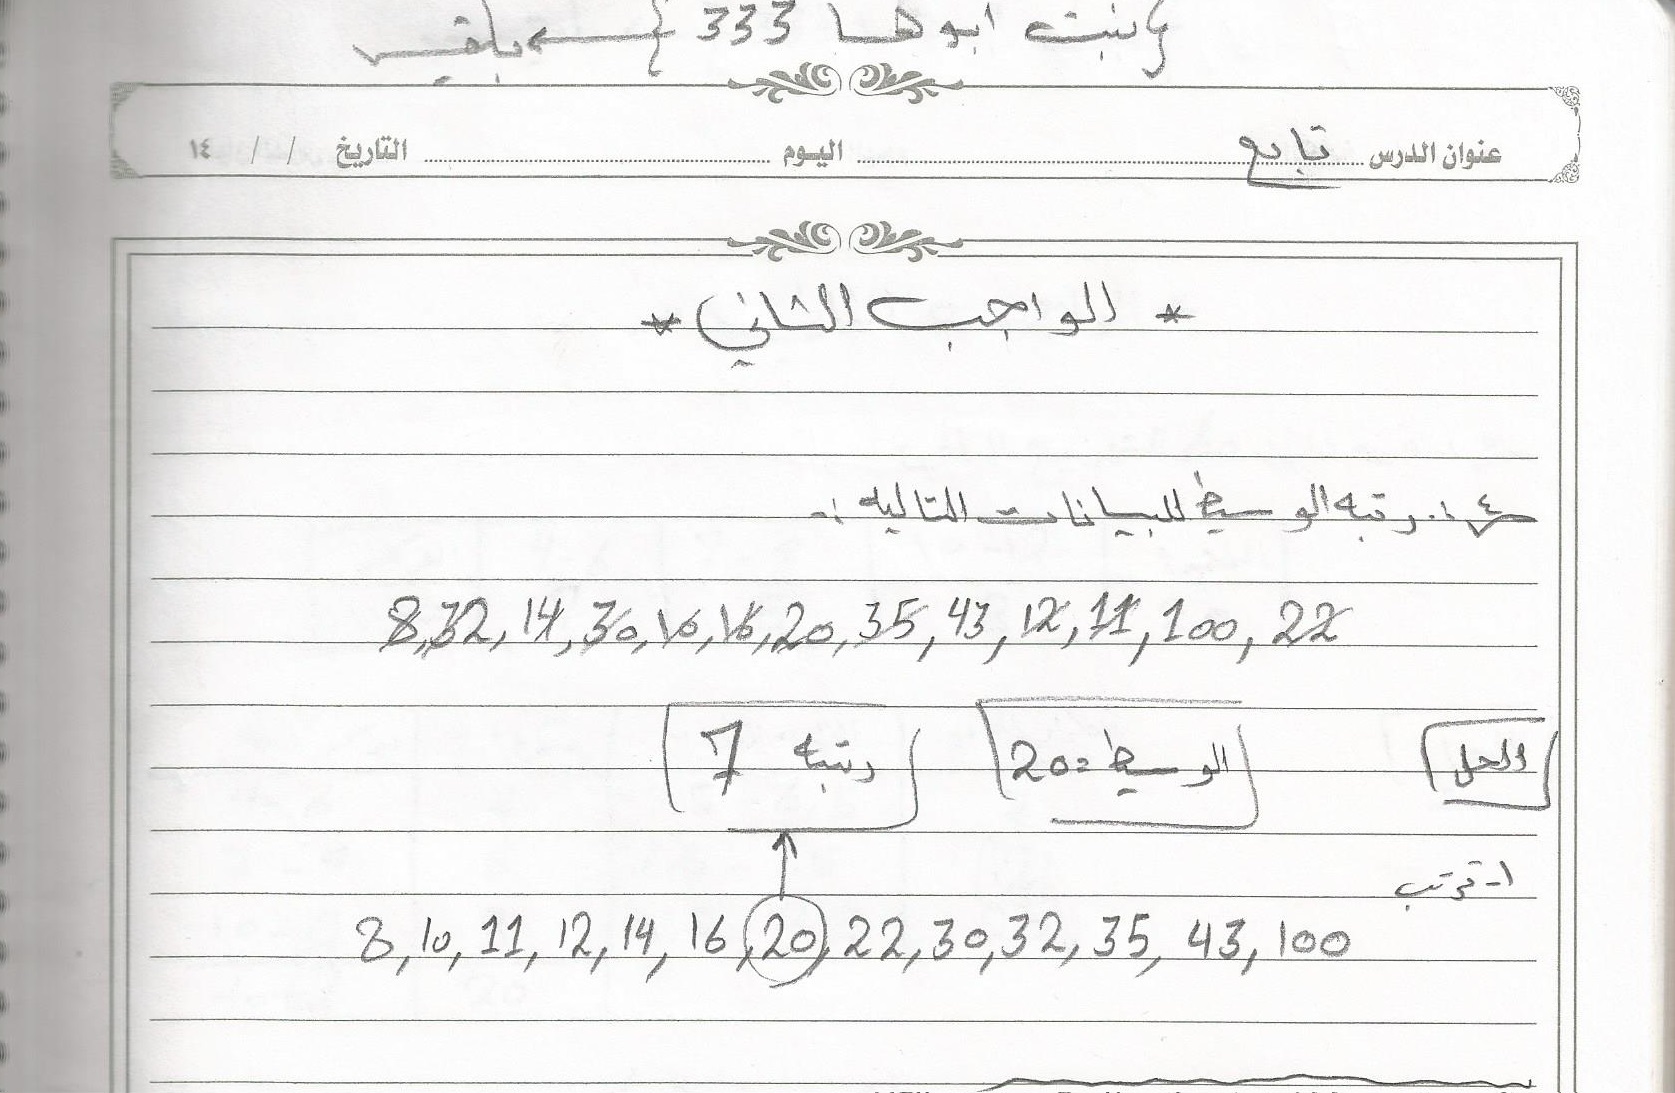 { بنت ابوها 333 } ← بلقيس
عنوان الدرس تابع اليوم التاريخ / / ١٤
* الواجب الثاني *
س٤ :. رتبه الوسيط للبيانات التاليه :-
8, 32, 14, 30, 10, 16, 20, 35, 43, 12, 11, 100, 22
الحل الوسيط = 20 رتبه 7
١- نرتب
8, 10, 11, 12, 14, 16, 20, 22, 30, 32, 35, 43, 100